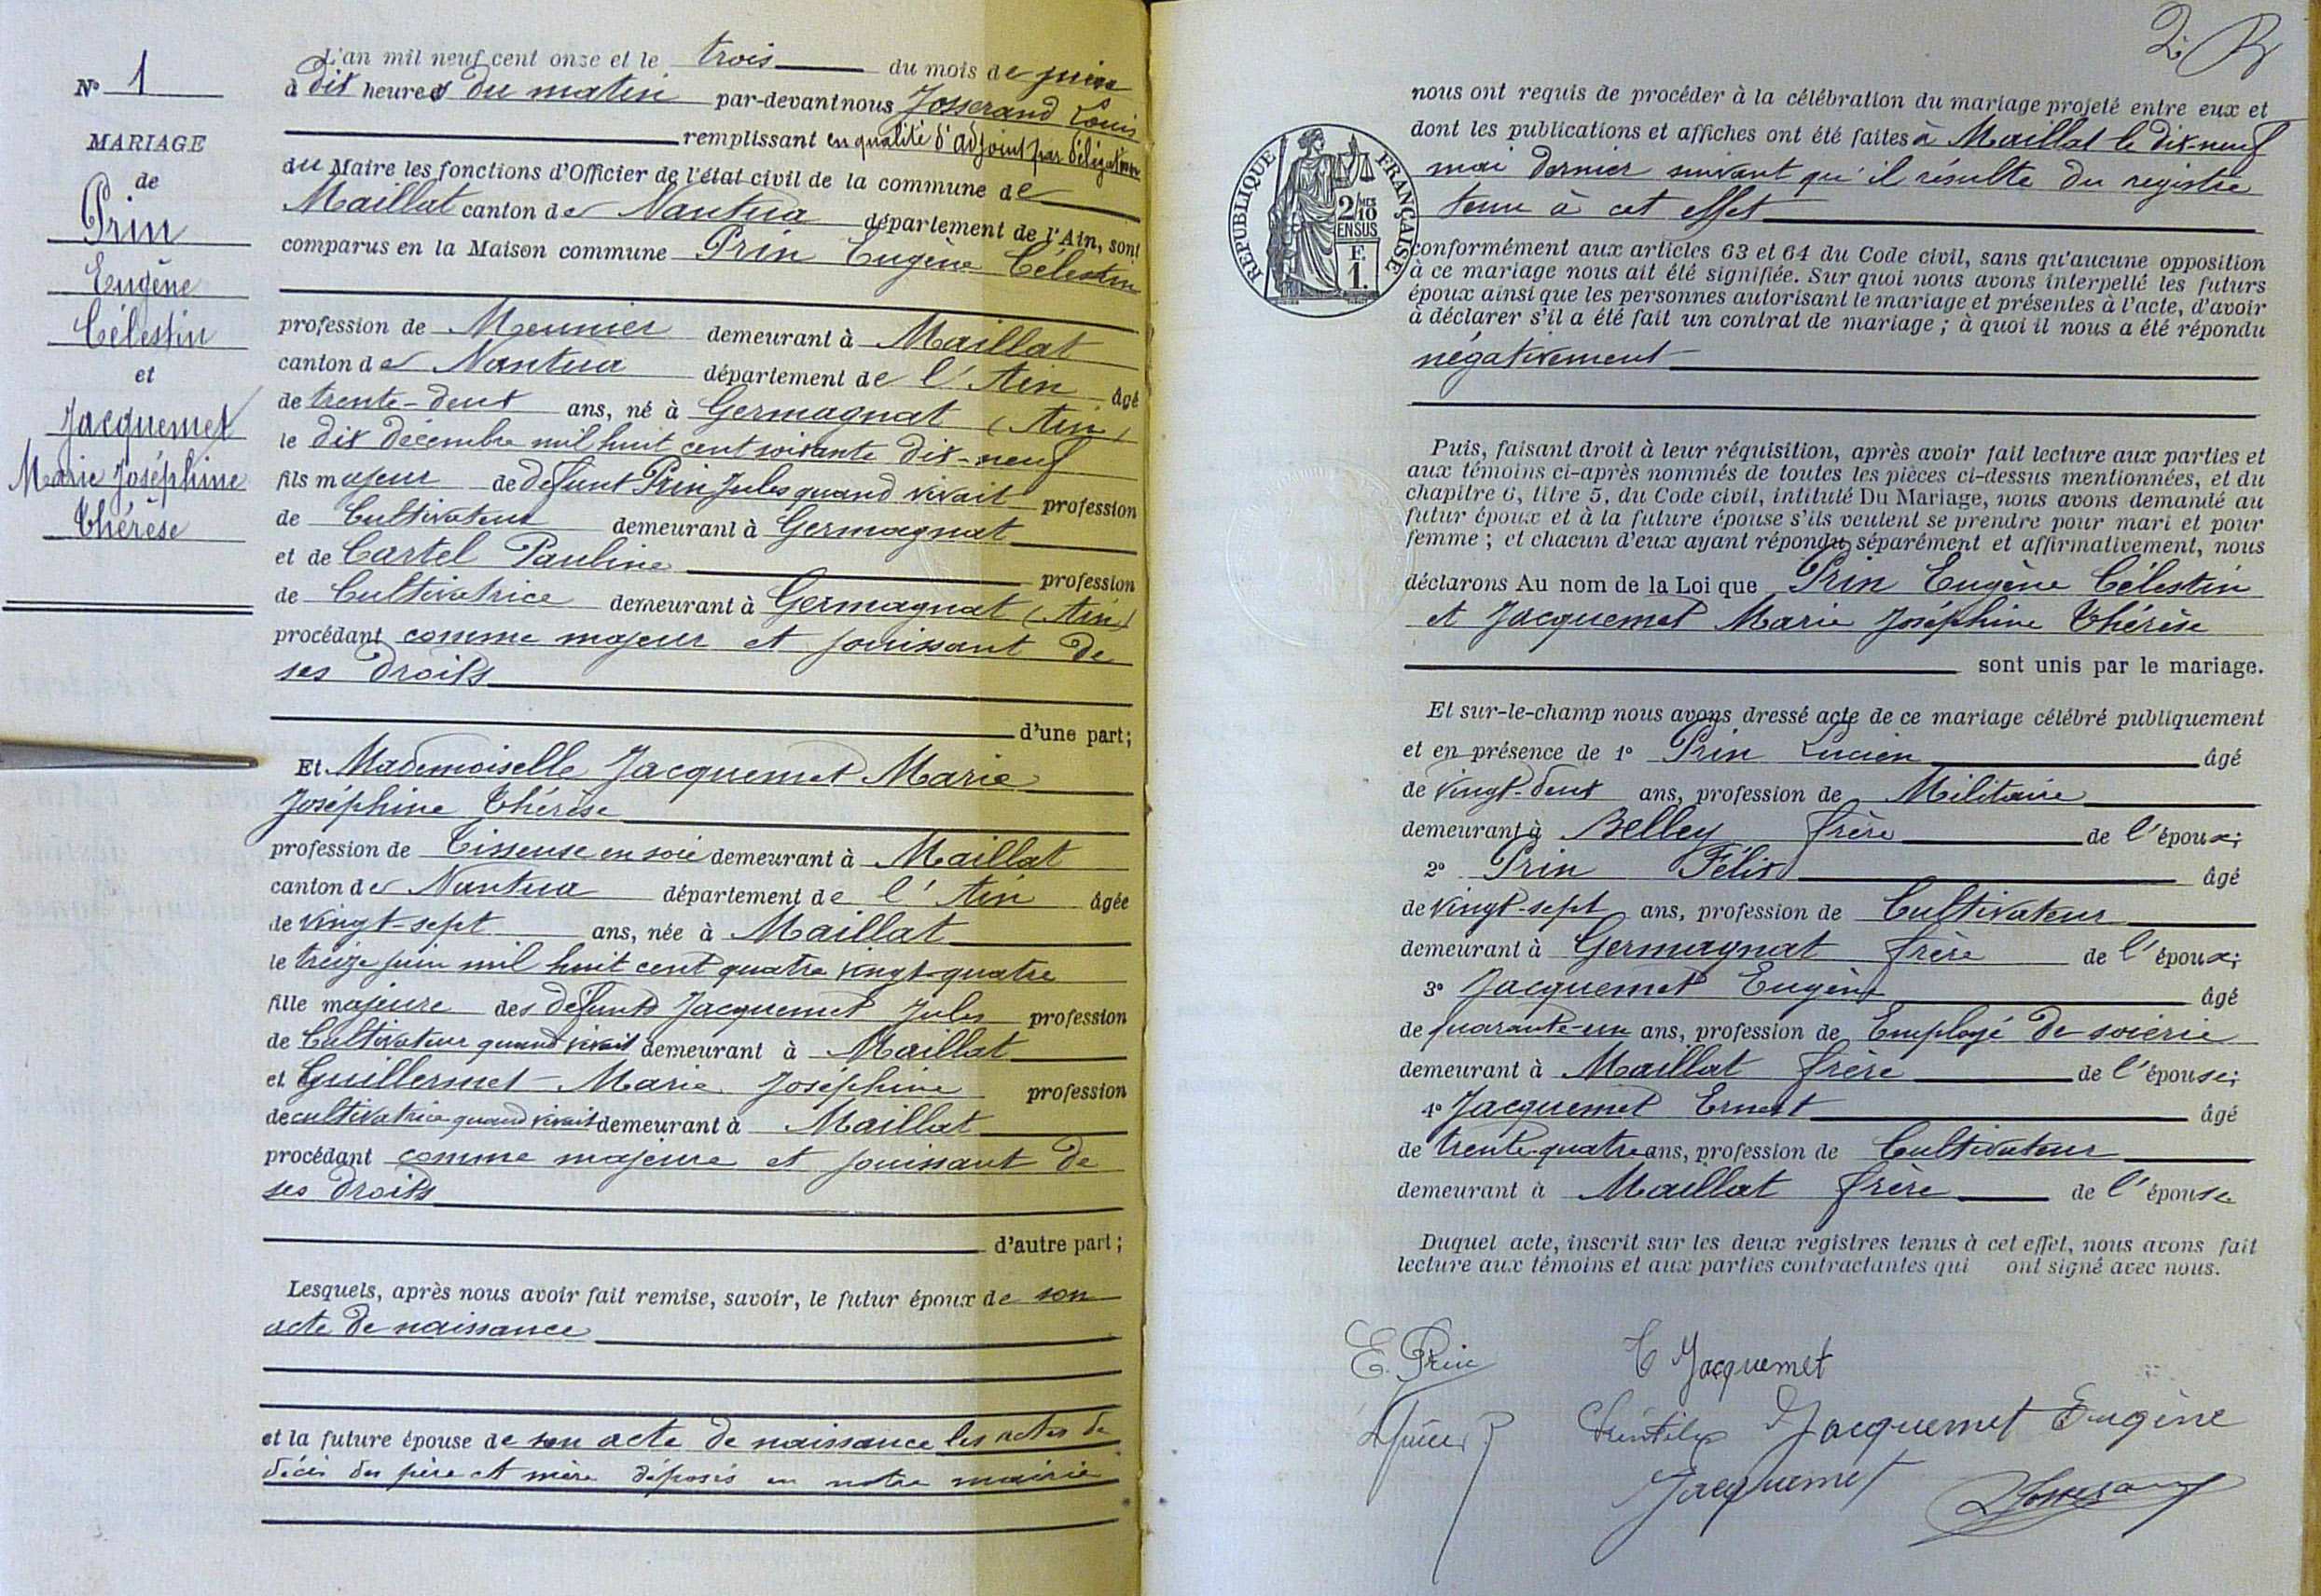 N° 1
MARIAGE
de
Prin
Eugène
Célestin
et
Jacquemet
Marie Joséphine
Thérèse
L'an mil neuf cent onze et le trois du mois de juin
à dix heures du matin par-devant nous Josserand Louis
remplissant en qualité d'adjoint par délégation
du Maire les fonctions d'Officier de l'état civil de la commune de
Maillat canton de Nantua département de l'Ain, sont
comparus en la Maison commune Prin Eugène Célestin
profession de Meunier demeurant à Maillat
canton de Nantua département de l'Ain âgé
de trente-deux ans, né à Germagnat (Ain)
le dix décembre mil huit cent soixante dix-neuf
fils majeur de défunt Prin Jules quand vivait profession
de Cultivateur demeurant à Germagnat
et de Cartel Pauline profession
de Cultivatrice demeurant à Germagnat (Ain)
procédant comme majeur et jouissant de
ses droits
d'une part;
Et Mademoiselle Jacquemet Marie
Joséphine Thérèse
profession de Tisseuse en soie demeurant à Maillat
canton de Nantua département de l'Ain âgée
de vingt-sept ans, née à Maillat
le treize juin mil huit cent quatre vingt-quatre
fille majeure des défunts Jacquemet Jules profession
de Cultivateur quand vivait demeurant à Maillat
et Guillermet Marie Joséphine profession
de cultivatrice quand vivait demeurant à Maillat
procédant comme majeure et jouissant de
ses droits
d'autre part;
Lesquels, après nous avoir fait remise, savoir, le futur époux de son
acte de naissance
et la future épouse de son acte de naissance les actes de
décès des père et mère déposés en notre mairie
2
nous ont requis de procéder à la célébration du mariage projeté entre eux et
dont les publications et affiches ont été faites à Maillat le dix-neuf
mai dernier suivant qu'il résulte du registre
tenu à cet effet
REPUBLIQUE FRANÇAISE
2/10
MES
EN SUS
F.
1.
conformément aux articles 63 et 64 du Code civil, sans qu'aucune opposition
à ce mariage nous ait été signifiée. Sur quoi nous avons interpellé les futurs
époux ainsi que les personnes autorisant le mariage et présentes à l'acte, d'avoir
à déclarer s'il a été fait un contrat de mariage ; à quoi il nous a été répondu
négativement
Puis, faisant droit à leur réquisition, après avoir fait lecture aux parties et
aux témoins ci-après nommés de toutes les pièces ci-dessus mentionnées, et du
chapitre 6, titre 5, du Code civil, intitulé Du Mariage, nous avons demandé au
futur époux et à la future épouse s'ils veulent se prendre pour mari et pour
femme ; et chacun d'eux ayant répondu séparément et affirmativement, nous
déclarons Au nom de la Loi que Prin Eugène Célestin
et Jacquemet Marie Joséphine Thérèse
sont unis par le mariage.
Et sur-le-champ nous avons dressé acte de ce mariage célébré publiquement
et en présence de 1° Prin Lucien âgé
de vingt-deux ans, profession de Militaire
demeurant à Belley frère de l'époux;
2° Prin Félix âgé
de vingt-sept ans, profession de Cultivateur
demeurant à Germagnat frère de l'époux;
3° Jacquemet Eugène âgé
de quarante-un ans, profession de Employé de soierie
demeurant à Maillat frère de l'épouse;
4° Jacquemet Ernest âgé
de trente-quatre ans, profession de Cultivateur
demeurant à Maillat frère de l'épouse
Duquel acte, inscrit sur les deux registres tenus à cet effet, nous avons fait
lecture aux témoins et aux parties contractantes qui ont signé avec nous.
E. Prin
Jacquemet
Jacquemet Eugène
Jacquemet
Josserand